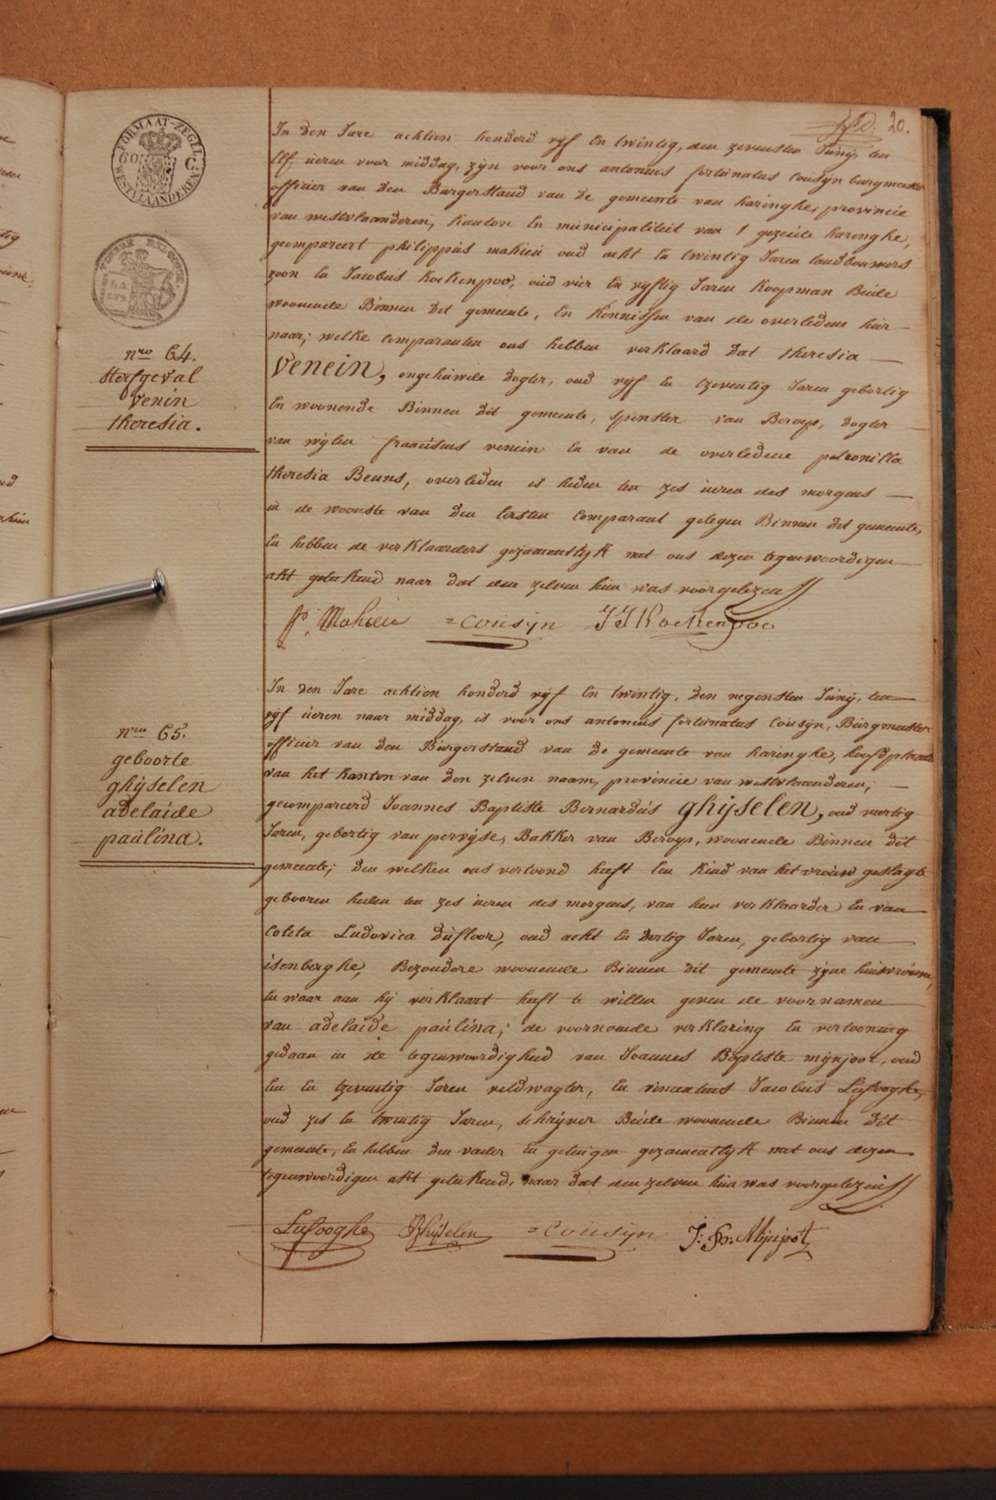 20.
FORMAAT-ZEGEL
WESTVLAANDEREN
nro 64.
Sterfgeval
Venin
theresia.
In den Jare achtien honderd vyf En twintig, den zevensten Juny, ten
Elf ueren voor middag, zyn voor ons antonius fortunatus Cousyn burgmeester
officier van den Burgerstand van de gemeente van haringhe, provincie
van westvlaanderen, kanton En municipaliteit van gezeide haringhe,
gecompareert philippus mahieu oud acht En twintig Jaren landbouwers
zoon En Jacobus kockenpoo, oud vier En vyftig Jaren koopman Beide
woonende Binnen dit gemeente, En kennissen van de overledene hier
naar; welke Comparanten ons hebben verklaard dat theresia
Venein, ongehuwde dogter, oud vyf En tzeventig Jaren gebortig
En woonende Binnen dit gemeente, spinster van Beroep, dogter
van wylen franciscus venein En van de overledene petronilla
theresia Beuns, overleden is heden ten zes ueren des morgens
in de woonste van den Eersten Comparant gelegen Binnen dit gemeente,
En hebben de verklaarders gezamentlyk met ons dezen tegenwoordigen
akt geteekend naar dat den zelven hun was voorgelezen
p: Mahieu = Cousyn J J Kockenpoo
nro 65.
geboorte
ghyselen
adelaide
paulina.
In den Jare achtien honderd vyf En twintig, den negensten Juny, ten
vyf ueren naar middag, is voor ons antonius fortunatus Cousyn, Burgmeester
officier van den Burgerstand van de gemeente van haringhe, hoofdplaats
van het kanton van den zelven naam, provincie van westvlaanderen;
gecompareerd Joannes Baptiste Bernardus ghyselen, oud veertig
Jaren, gebortig van pervyse, Bakker van Beroep, woonende Binnen dit
gemeente; den welken ons vertoond heeft Een kind van het vrouw geslagt
gebooren heden ten zes ueren des morgens, van hem verklaarder En van
Coleta Ludovica dufloor, oud acht En dertig Jaren, gebortig van
isenberghe, Bezondere woonende Binnen dit gemeente zyne huisvrouwe,
En waar aan hy verklaart heeft te willen geven de voornamen
van adelaide paulina; de voornoemde verklaring En vertooning
gedaan in de tegenwoordigheid van Joannes Baptiste mynjoot, oud
Een En tzeventig Jaren veldwagter, En vincentius Jacobus Lefooghe,
oud zes En twintig Jaren, schryver Beide woonende Binnen dit
gemeente, En hebben den vader En getuigen gezamentlyk met ons dezen
tegenwoordigen akt geteekend, naar dat den zelven hun was voorgelezen
Lefooghe Ghyselen = Cousyn J: Bte. Mynjoot